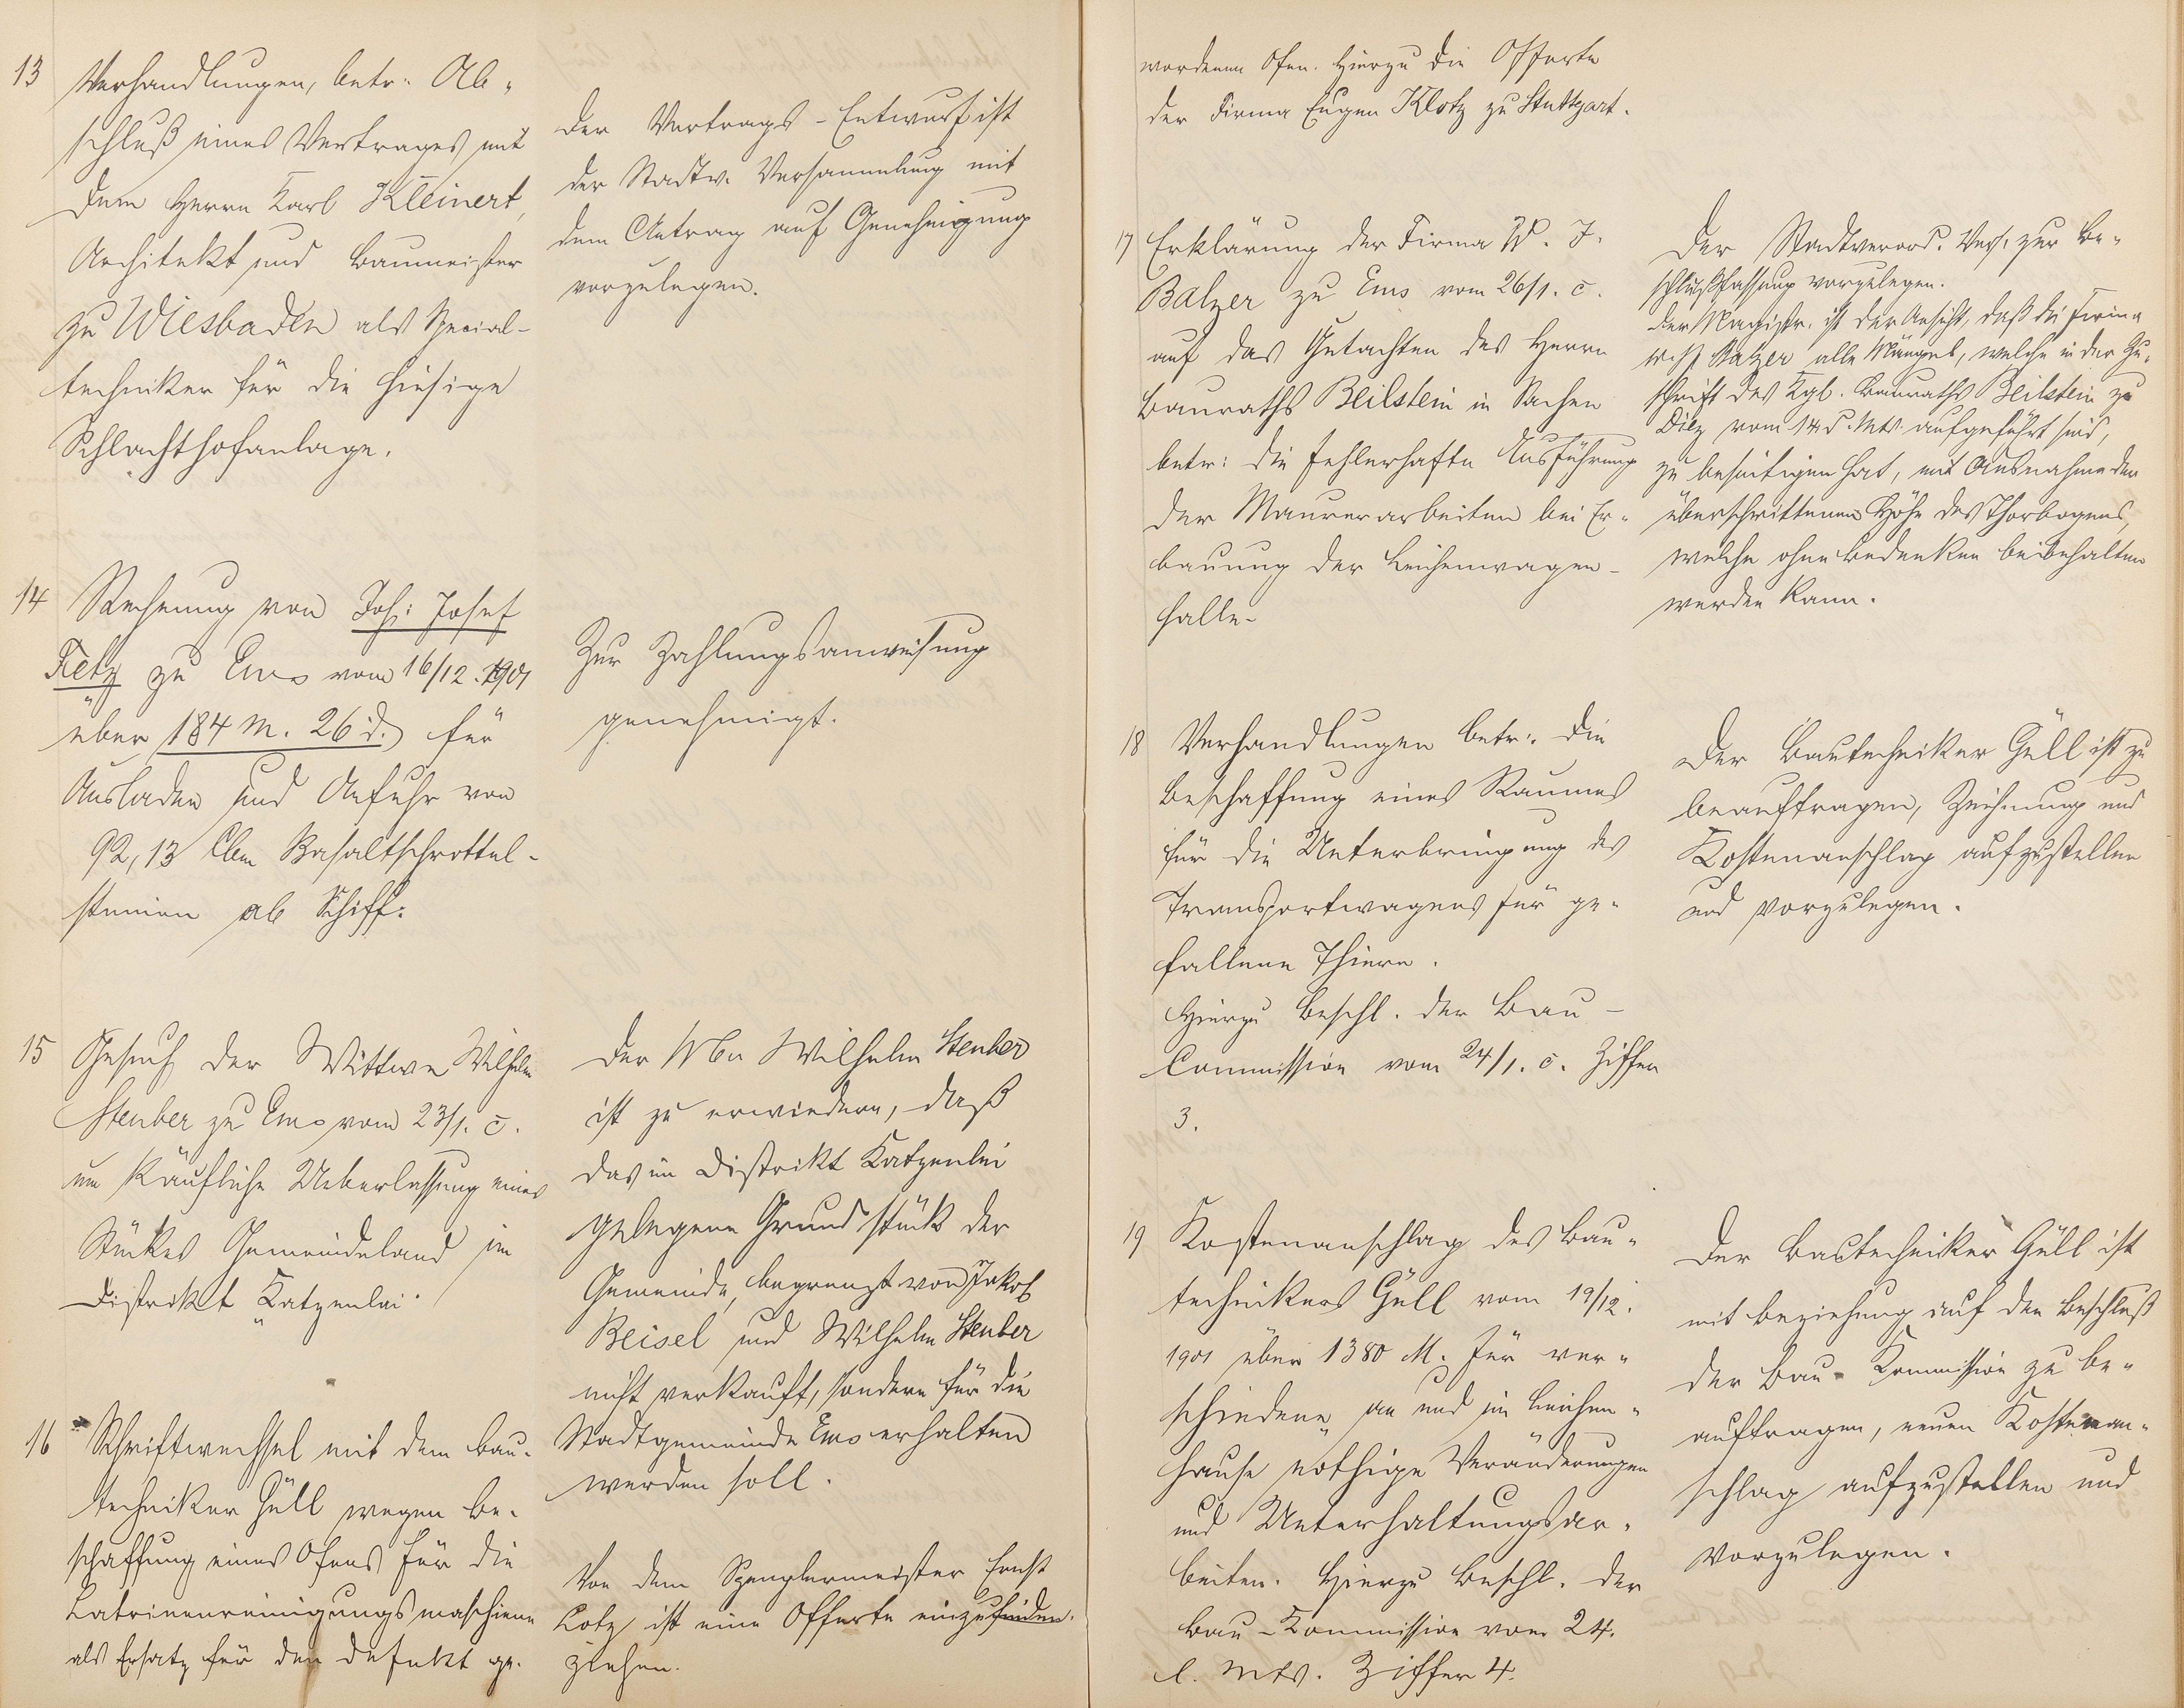 13 Verhandlungen, betr. Ab-
schluß eines Vertrages mit
dem Herrn Karl Kleinert,
Architekt und Baumeister
zu Wiesbaden als Special-
techniker für die hiesige
Schlachthofanlage.
Der Vertrags-Entwurf ist
der Stadtv. Versammlung mit
dem Antrag auf Genehmigung
vorzulegen.
14 Rechnung von Joh: Josef
Fetz zu Ems vom 16/12. 1901
über 184 M. 26 d. für
Ausladen und Anfuhr von
92,13 Cbm Basaltschrottel-
steinen ab Schiff.
Zur Zahlungsanweisung
genehmigt.
15 Gesuch der Wittwe Wilhelm
Steuber zu Ems vom 23/1. c.
um käufliche Ueberlassung eines
Stückes Gemeindeland im
Distrikt Katzenlai.
Der Wwe Wilhelm Steuber
ist zu erwiedern, daß
das im Distrikt Katzenlei
gelegene Grundstück der
Gemeinde, begrenzt von Jakob
Beisel und Wilhelm Steuber
nicht verkauft, sondern für die
Stadtgemeinde Ems erhalten
werden soll.
16 Schriftwechsel mit dem Bau-
techniker Güll wegen Be-
schaffung eines Ofens für die
Latrinenreinigungsmaschiene
als Ersatz für den defekt ge-
Von dem Spenglermeister Ernst
Lotz ist eine Offerte einzufinden.
ziehen.
wordenen Ofen. Hierzu die Offerte
der Firma Eugen Klotz zu Stuttgart.
17 Erklärung der Firma W. J.
Balzer zu Ems vom 26/1. c.
auf das Gutachten des Herrn
Bauraths Beilstein in Sachen
betr: die fehlerhafte Ausführung
der Maurerarbeiten bei Er-
bauung der Leichenwagen-
halle.
Der Stadtverord. Vers. zur Be-
schlußfassung vorzulegen.
Der Magistr. ist der Ansicht, daß die Firma
W. J. Balzer alle Mängel, welche in der Zu-
schrift des Kgl. Bauraths Beilstein zu
Diez vom 14. d. Mts. aufgeführt sind,
zu beseitigen hat, mit Ausnahme der
überschrittenen Höhe des Thorbogens,
welche ohne Bedenken beibehalten
werden kann.
18 Verhandlungen betr: die
Beschaffung eines Raumes
für die Unterbringung des
Transportwagens für ge-
fallene Thiere.
Hierzu Beschl. der Bau-
Commission vom 24/1. c. Ziffer
3.
Der Bautechniker Güll ist zu
beauftragen, Zeichnung und
Kostenanschlag aufzustellen
und vorzulegen.
19 Kostenanschlag des Bau-
technikers Güll vom 19/12.
1901 über 1380 M. für ver-
schiedene an und im Leichen-
hause nöthige Veränderungen
und Unterhaltungsar-
beiten. Hierzu Beschl. der
Bau-Kommission vom 24.
l. Mts. Ziffer 4.
Der Bautechniker Güll ist
mit Beziehung auf den Beschluß
der Bau-Kommission zu be-
auftragen, neuen Kostenan-
schlag aufzustellen und
vorzulegen.